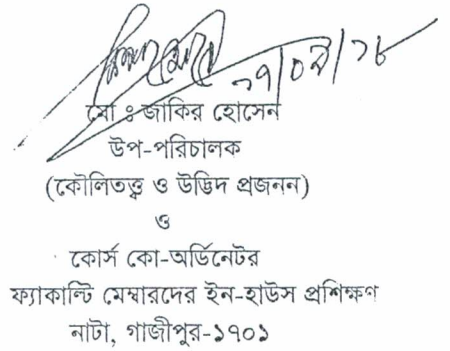 মো ঃ জাকির হোসেন
উপ-পরিচালক
(কৌলিতত্ত্ব ও উদ্ভিদ প্রজনন)
ও
কোর্স কো-অর্ডিনেটর
ফ্যাকাল্টি মেম্বারদের ইন-হাউস প্রশিক্ষণ
নাটা, গাজীপুর-১৭০১